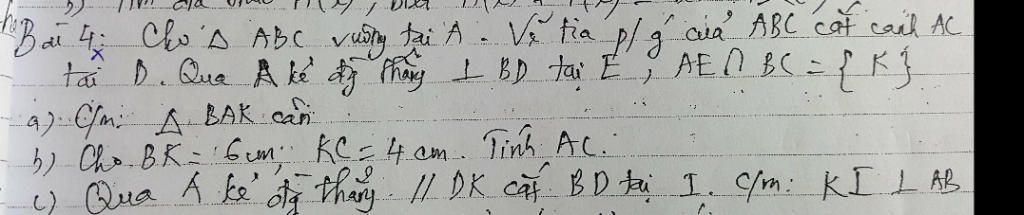 Bài 4: Cho Δ ABC vuông tại A. Vẽ tia p/g của ABC cắt cạnh AC
tại D. Qua A kẻ đg thẳng ⊥ BD tại E, AE ∩ BC = { K }
a) C/m: Δ BAK cân
b) Cho BK = 6 cm; KC = 4 cm. Tính AC.
c) Qua A kẻ đg thẳng // DK cắt BD tại I. C/m: KI ⊥ AB